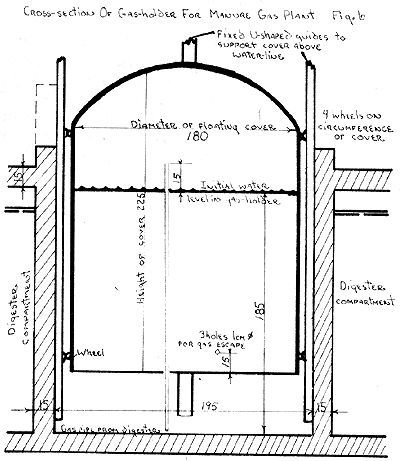 Cross-section Of Gas-holder For Manure Gas Plant Fig. 6
Fixed U-shaped guides to
support cover above
water-line
Diameter of floating cover
180
4 wheels on
circumference
of cover
15
15
Initial water
level in gas-holder
Height of cover 225
185
Digester
compartment
Digester
compartment
3 holes 1cm ø
for gas escape
15
Wheel
15
195
15
Gas pipe from digester